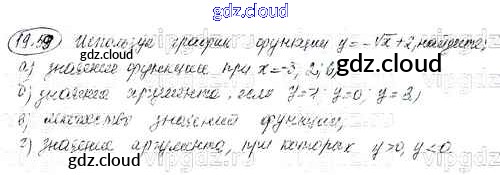 gdz.cloud
19.59 Используя график функции y = -√x + 2, найдите:
а) значение функции при x = -3, 2, 6,
б) значения аргумента, если y = 1, y = 0, y = 3,
в) множество значений функции,
г) значение аргумента, при которых y > 0, y < 0.
gdz.cloud
gdz.cloud
gdz.cloud
gdz.cloud